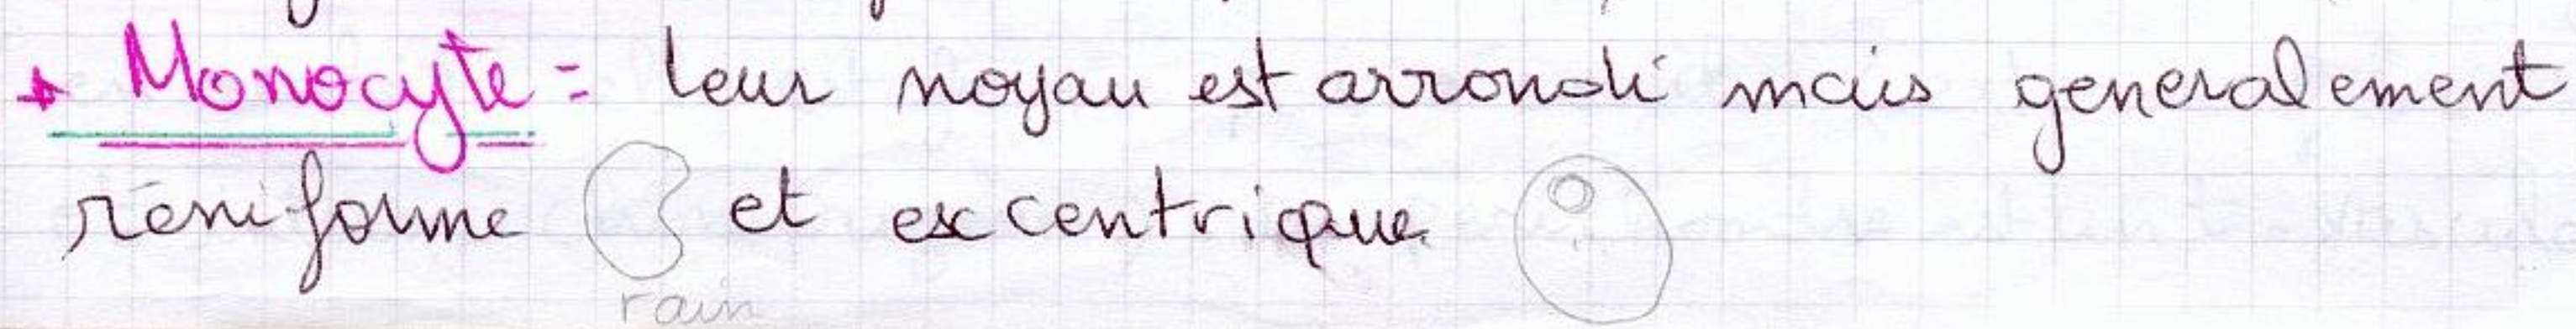 + Monocyte = leur noyau est arrondi mais generalement
réniforme et excentrique
rain